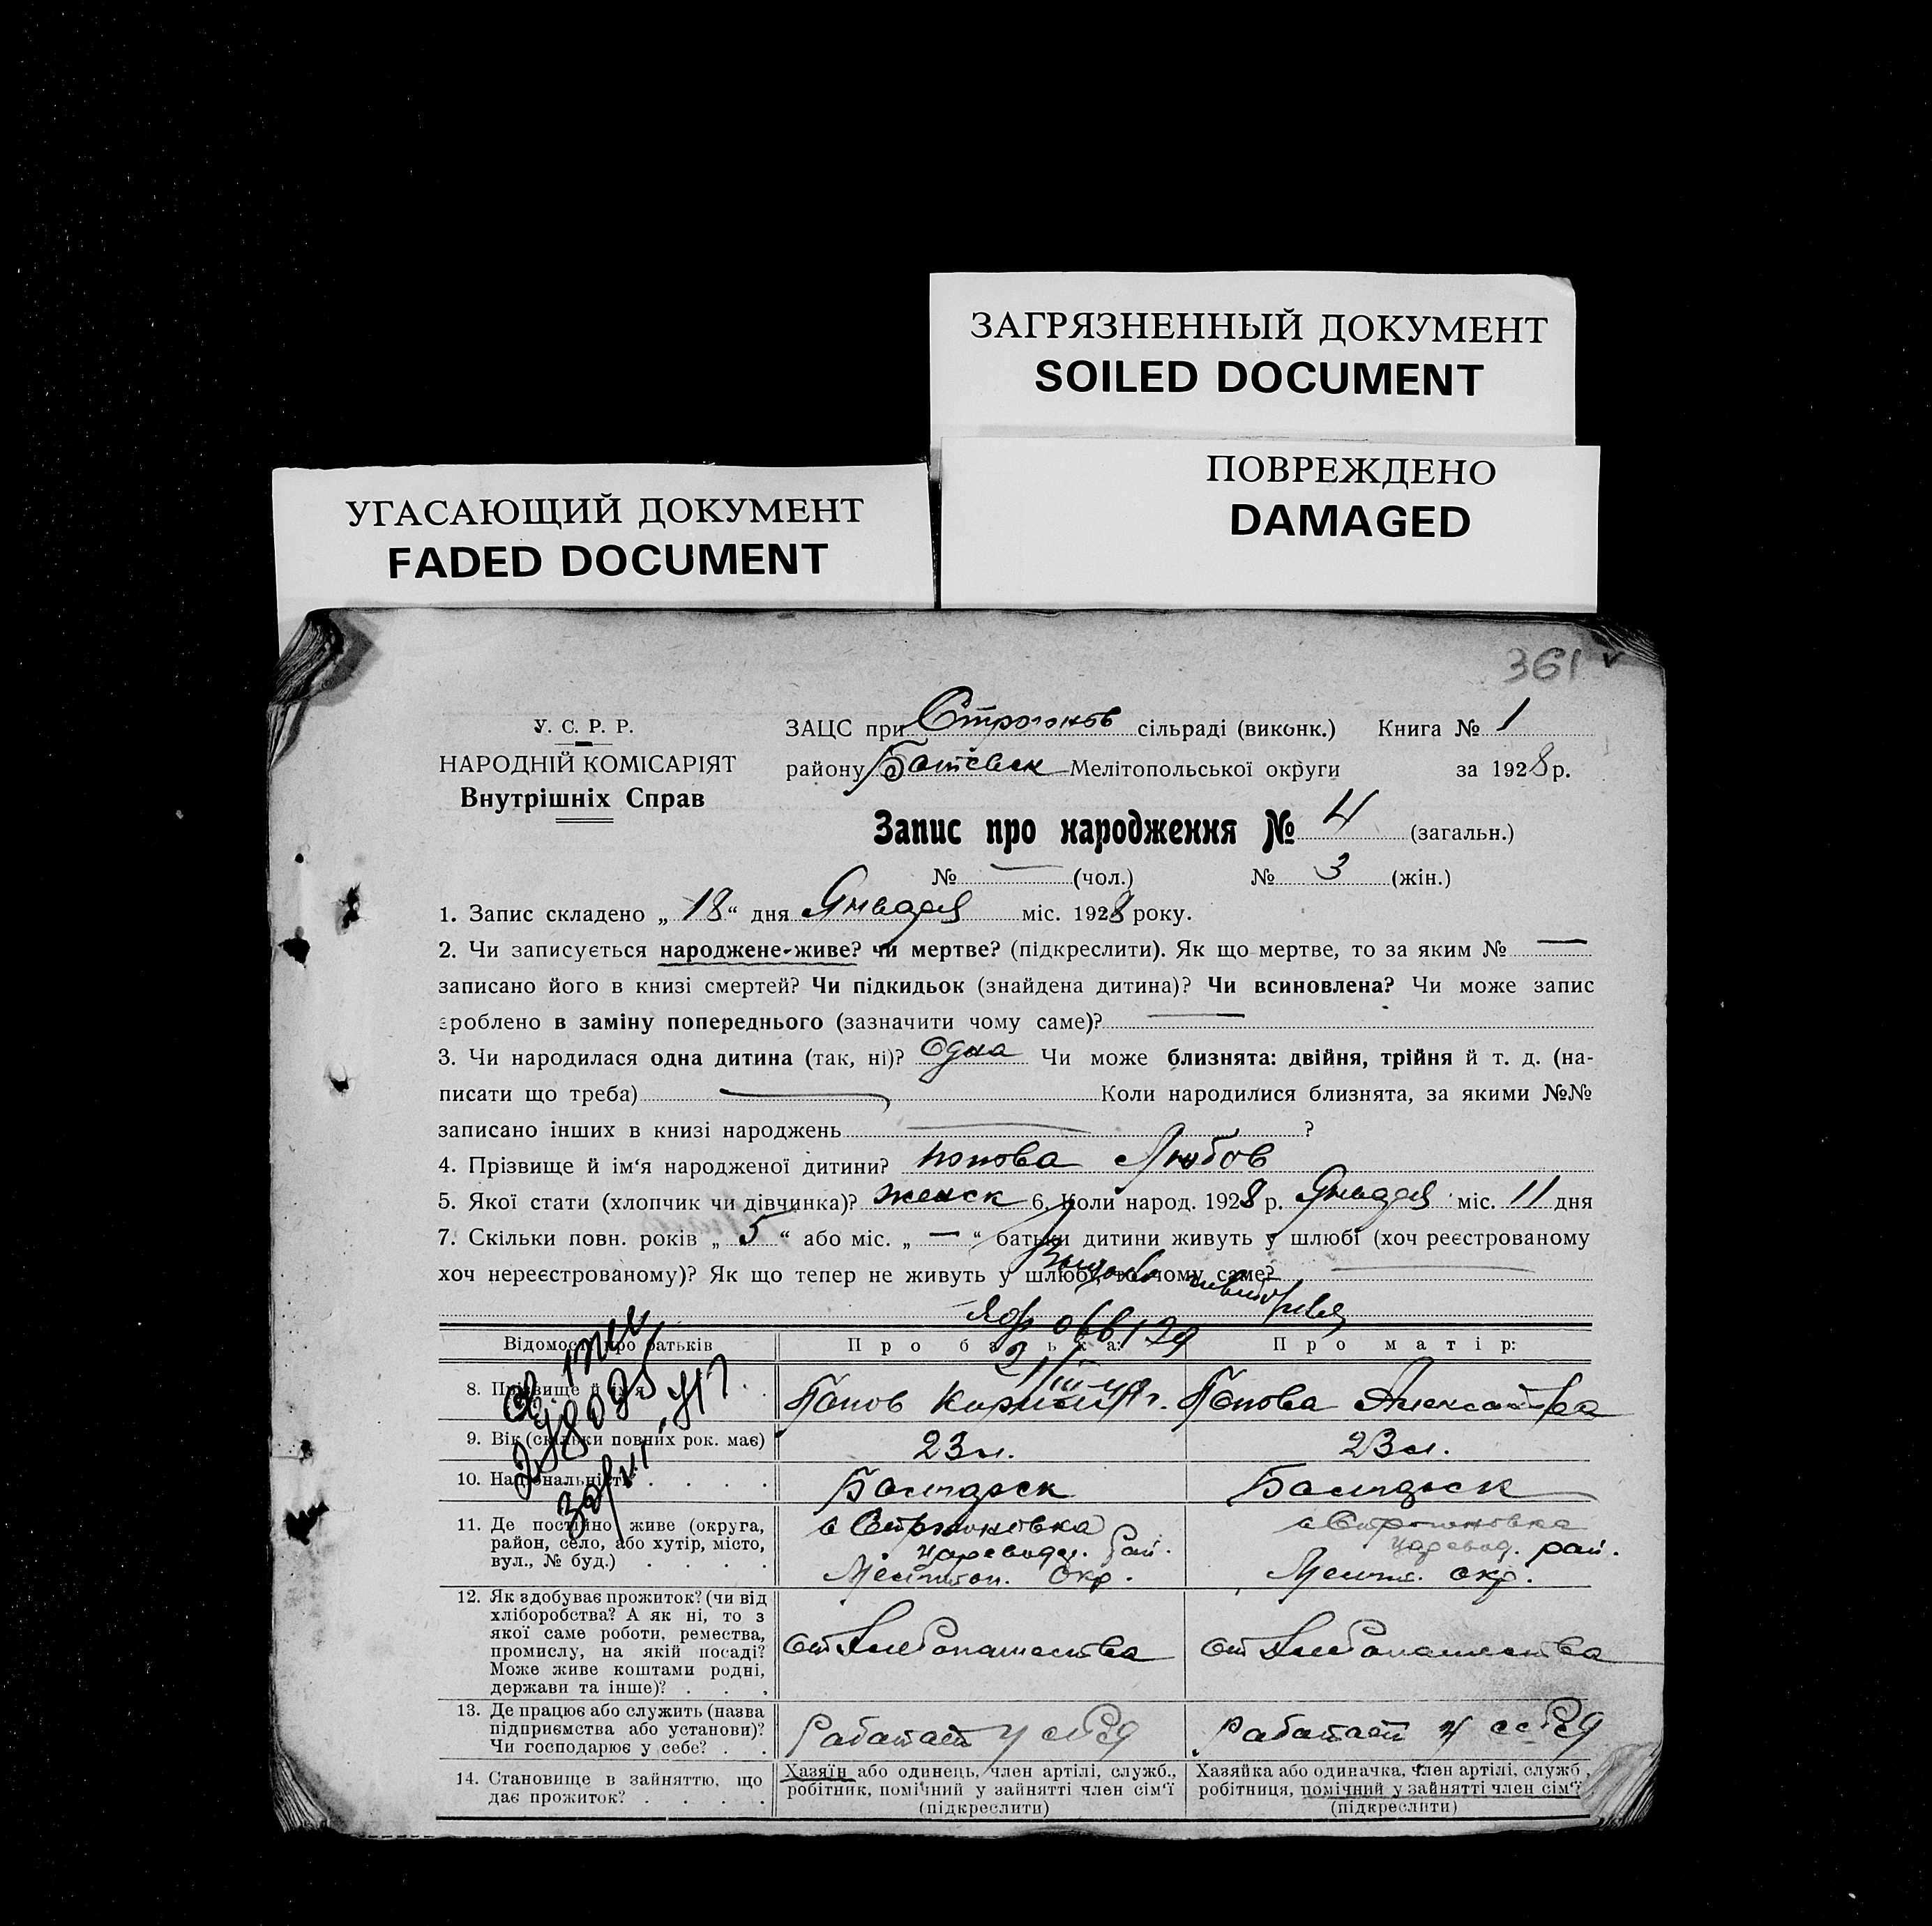 ЗАГРЯЗНЕННЫЙ ДОКУМЕНТ
SOILED DOCUMENT
ПОВРЕЖДЕНО
DAMAGED
УГАСАЮЩИЙ ДОКУМЕНТ
FADED DOCUMENT
361
У. С. Р. Р.
НАРОДНІЙ КОМІСАРІЯТ
Внутрішніх Справ
ЗАЦС при Строгонов сільраді (виконк.) Книга № 1
району Мелітопольської округи за 1928 р.
Запис про народження № 4 (загальн.)
№ — (чол.) № 3 (жін.)
1. Запис складено „ 18 “ дня Января міс. 1928 року.
2. Чи записується народжене-живе? чи мертве? (підкреслити). Як що мертве, то за яким № —
записано його в книзі смертей? Чи підкидьок (знайдена дитина)? Чи всиновлена? Чи може запис
зроблено в заміну попереднього (зазначити чому саме)? —
3. Чи народилася одна дитина (так, ні)? Одна Чи може близнята: двійня, трійня й т. д. (на-
писати що треба) — Коли народилися близнята, за якими №№
записано інших в книзі народжень — ?
4. Прізвище й ім‘я народженої дитини? Попова Любов
5. Якої стати (хлопчик чи дівчинка)? женск 6. Коли народ. 1928 р. Января міс. 11 дня
7. Скільки повн. років „ 5 “ або міс. „ — “ батьки дитини живуть у шлюбі (хоч реєстрованому
хоч нереєстрованому)? Як що тепер не живуть у шлюбі, то чому саме? —
Відомості про батьків Про батька: Про матір:
8. Прізвище й ім‘я . . . Попов Попова
9. Вік (скільки повних рок. має) 23 л. 23 л.
10. Національність . . . . Болгарск Болгарск
11. Де постійно живе (округа, район, село, або хутір, місто, вул., № буд.) . . . .
с Строгоновка
Царевод. Рай.
Мелитоп. Окр.
с Строгоновка
Царевод. рай.
Мелит. окр.
12. Як здобуває прожиток? (чи від
хліборобства? А як ні, то з
якої саме роботи, ремества,
промислу, на якій посаді?
Може живе коштами родні,
держави та інше)? . . .
от Хлебопашества
от Хлебопашества
13. Де працює або служить (назва
підприємства або установи)?
Чи господарює у себе? . .
Работает у себя
Работает у себя
14. Становище в зайняттю, що
дає прожиток? . . . .
Хазяїн або одинець, член артілі, служб.,
робітник, помічний у зайнятті член сім‘ї
(підкреслити)
Хазяйка або одиначка, член артілі, служб.,
робітниця, помічний у зайнятті член сім‘ї
(підкреслити)